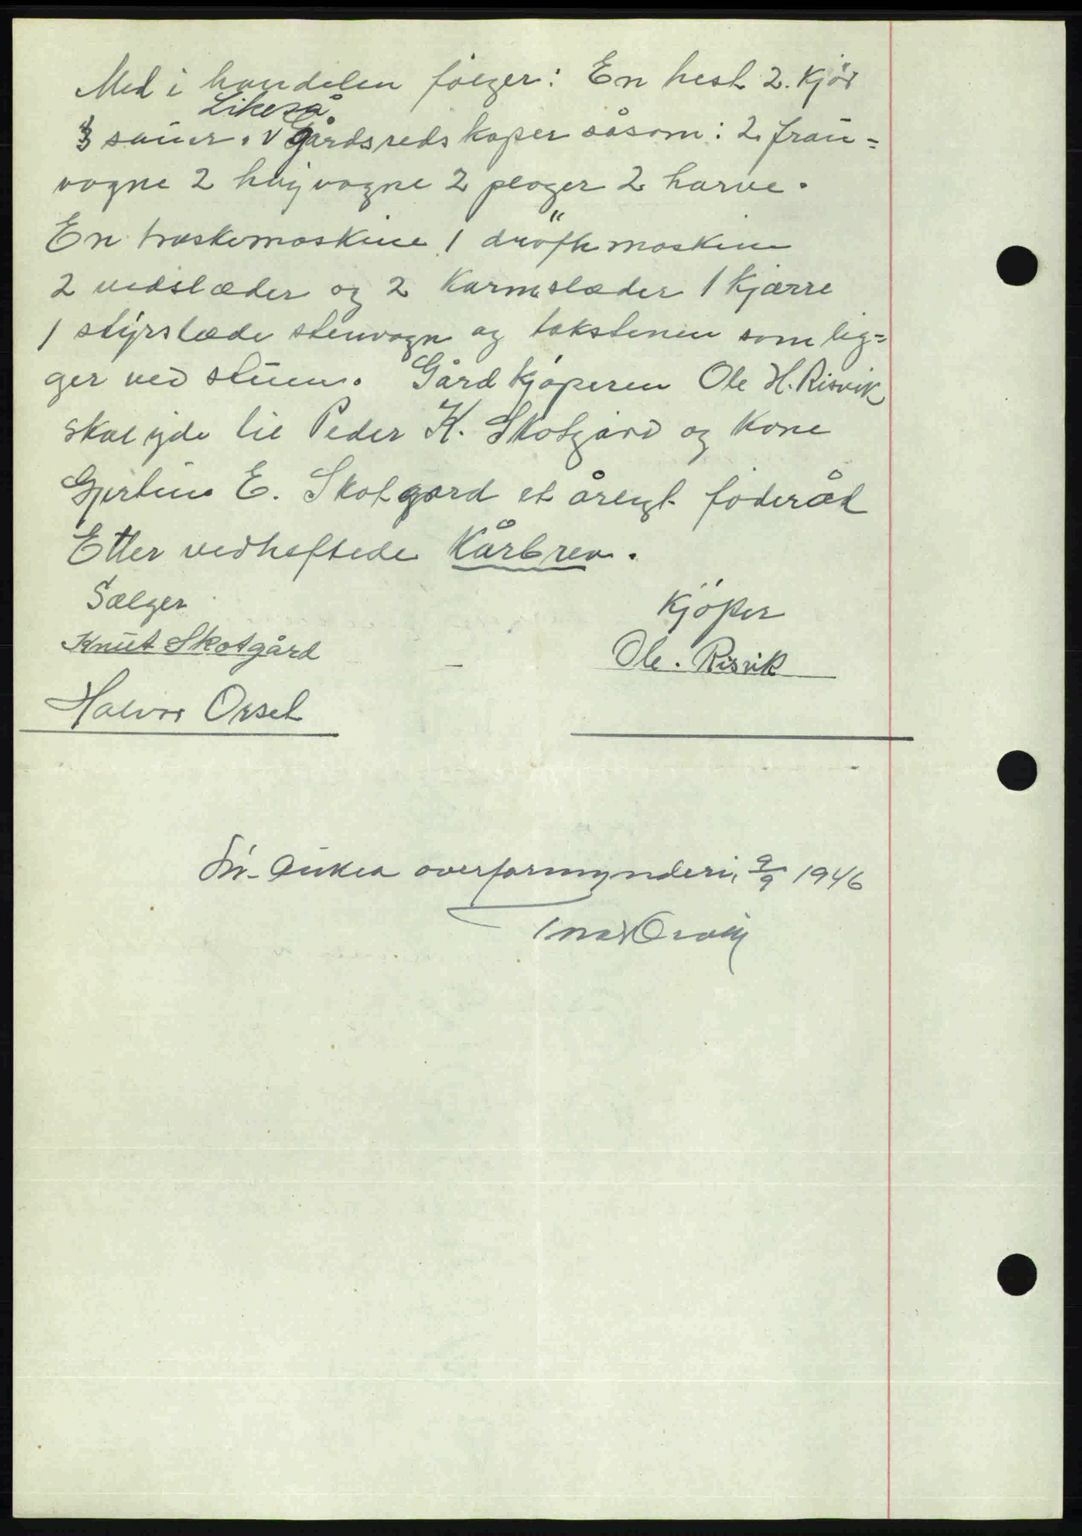 Med i handelen følger: En hest 2. Kjör
Likeså
3 sauer. V Gårdsredskaper såsom: 2 frau=
vogne 2 høyvogne 2 ploger 2 harve.
En træskemaskine 1 dröftemaskine
2 vedslæder og 2 Karmslæder 1 Kjærre
1 styrslæde stenvogn og takstenen som lig=
ger ved stuen. Gård kjøperen Ole H. Risvik
skal yde til Peder K. Skotgård og Kone
Gjertine E. Skotgard et årlegt föderåd
Etter vedheftede Kårbrev.
Sælger
Kjöper
Knut Skotgård
Ole. Risvik
Halvor Orset
overformynderi, 9/9 1946